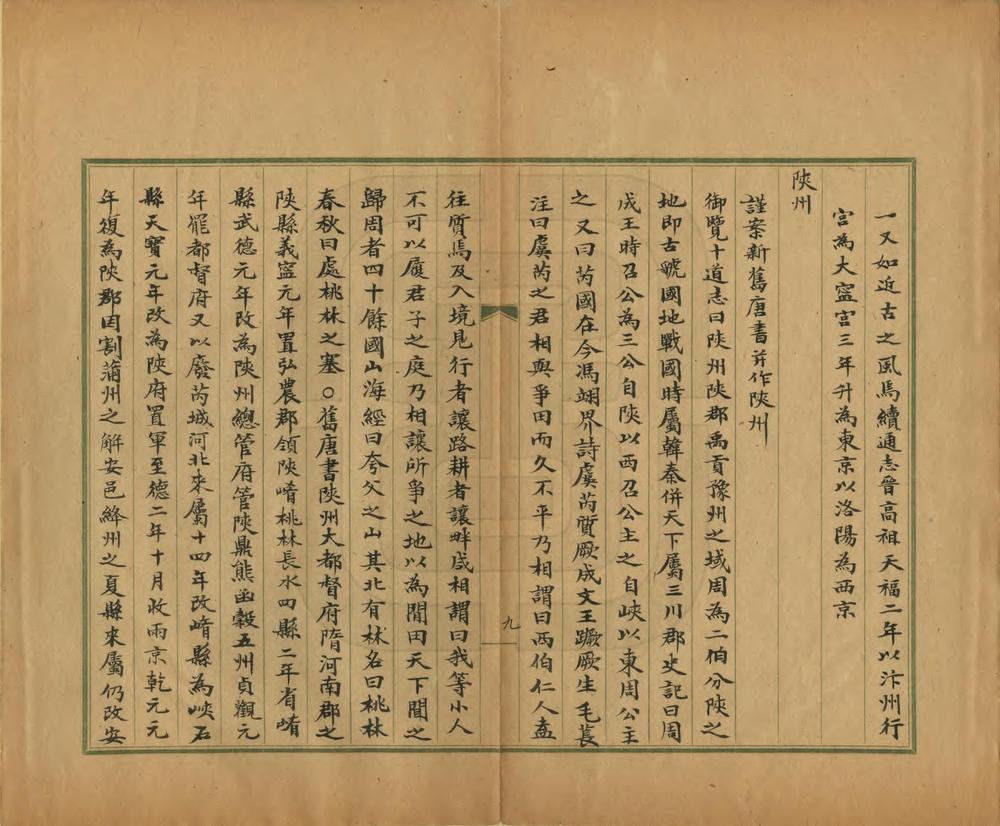 一又如近古之風焉續通志晉高祖天福二年以汴州行
宮為大寧宮三年升為東京以洛陽為西京
陝州
謹案新舊唐書并作陝州
御覽十道志曰陝州陝郡禹貢豫州之域周為二伯分陝之
地即古虢國地戰國時屬韓秦併天下屬三川郡史記曰周
成王時召公為三公自陝以西召公主之自峽以東周公主
之又曰芮國在今馮翊界詩虞芮質厥成文王蹶厥生毛萇
注曰虞芮之君相與爭田而久不平乃相謂曰西伯仁人盍
九
往質焉及入境見行者讓路耕者讓畔咸相謂曰我等小人
不可以履君子之庭乃相讓所爭之地以為閒田天下聞之
歸周者四十餘國山海經曰夸父之山其北有林名曰桃林
春秋曰處桃林之塞○舊唐書陝州大都督府隋河南郡之
陝縣義寧元年置弘農郡領陝崤桃林長水四縣二年省崤
縣武德元年改為陝州總管府管陝鼎熊函穀五州貞觀元
年罷都督府又以廢芮城河北來屬十四年改崤縣為峽石
縣天寶元年改為陝府置軍至德二年十月收兩京乾元元
年復為陝郡因割蒲州之解安邑絳州之夏縣來屬仍改安